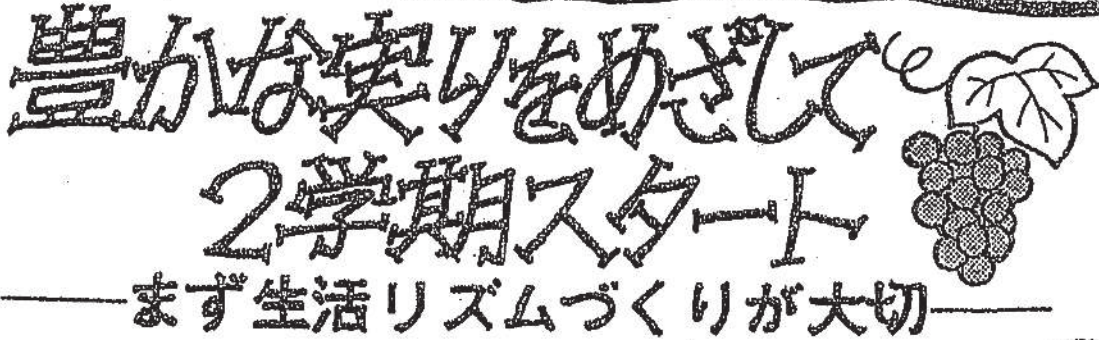 豊かな実りをめざして
2学期スタート
まず生活リズムづくりが大切